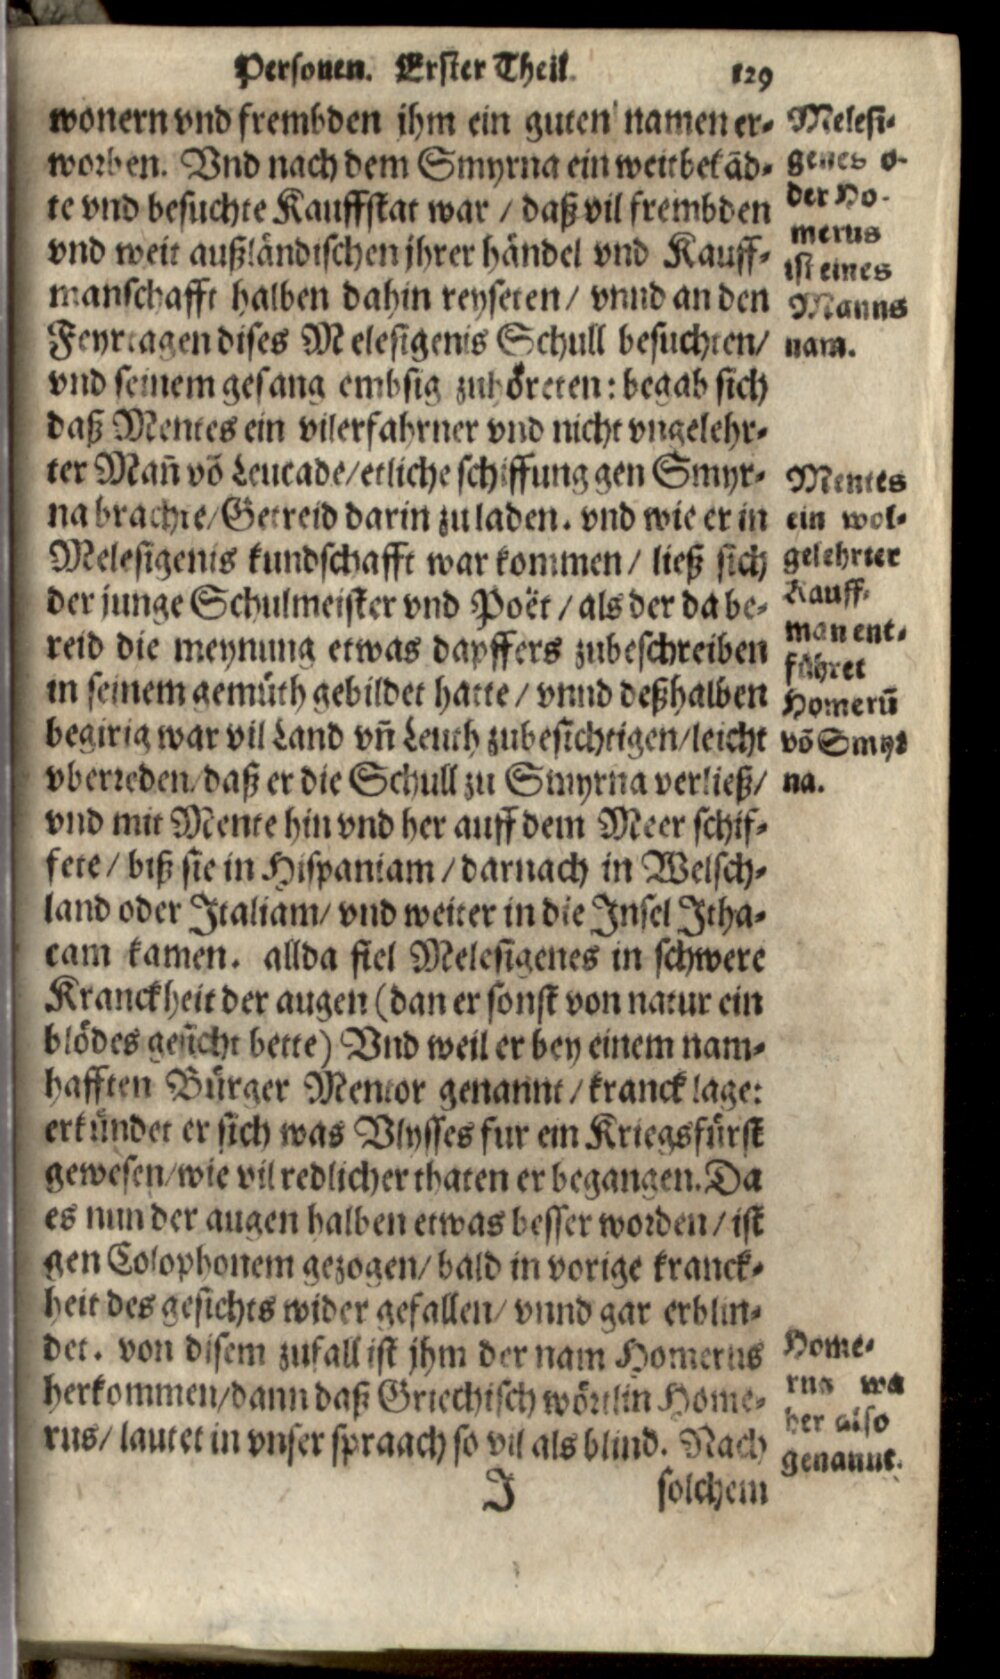 Personen. Erster Theil. 129
wonern vnd frembden jhm ein guten namen er-
worben. Vnd nach dem Smyrna ein weitbekãd-
te vnd besuchte Kauffstat war / daß vil frembden
vnd weit außländischen jhrer händel vnd Kauff-
manschafft halben dahin reyseten / vnnd an den
Feyrtagen dises Melesigenis Schull besuchten /
vnd seinem gesang embsig zuhöreten: begab sich
daß Mentes ein vilerfahrner vnd nicht vngelehr-
ter Mañ võ Leucade / etliche schiffung gen Smyr-
na brachte / Getreid darin zu laden. vnd wie er in
Melesigenis kundschafft war kommen / ließ sich
der junge Schulmeister vnd Poët / als der da be-
reid die meynung etwas dapffers zubeschreiben
in seinem gemüth gebildet hatte / vnnd deßhalben
begirig war vil Land vñ Leuth zubesichtigen / leicht
vberreden / daß er die Schull zu Smyrna verließ /
vnd mit Mente hin vnd her auff dem Meer schif-
fete / biß sie in Hispaniam / darnach in Welsch-
land oder Italiam / vnd weiter in die Insel Itha-
cam kamen. allda fiel Melesigenes in schwere
Kranckheit der augen (dan er sonst von natur ein
blödes gesicht hette) Vnd weil er bey einem nam-
hafften Bürger Mentor genannt / kranck lage:
erkündet er sich was Vlysses fur ein Kriegsfürst
gewesen / wie vil redlicher thaten er begangen. Da
es nun der augen halben etwas besser worden / ist
gen Colophonem gezogen / bald in vorige kranck-
heit des gesichts wider gefallen / vnnd gar erblin-
det. von disem zufall ist jhm der nam Homerus
herkommen / dann daß Griechisch wörtlin Home-
rus / lautet in vnser spraach so vil als blind. Nach
J solchem
Melesi-
genes o-
der Ho-
merus
ist eines
Manns
nam.
Mentes
ein wol-
gelehrter
Kauff-
man ent-
führet
Homerũ
võ Smyr
na.
Home-
rus wa
her also
genannt.